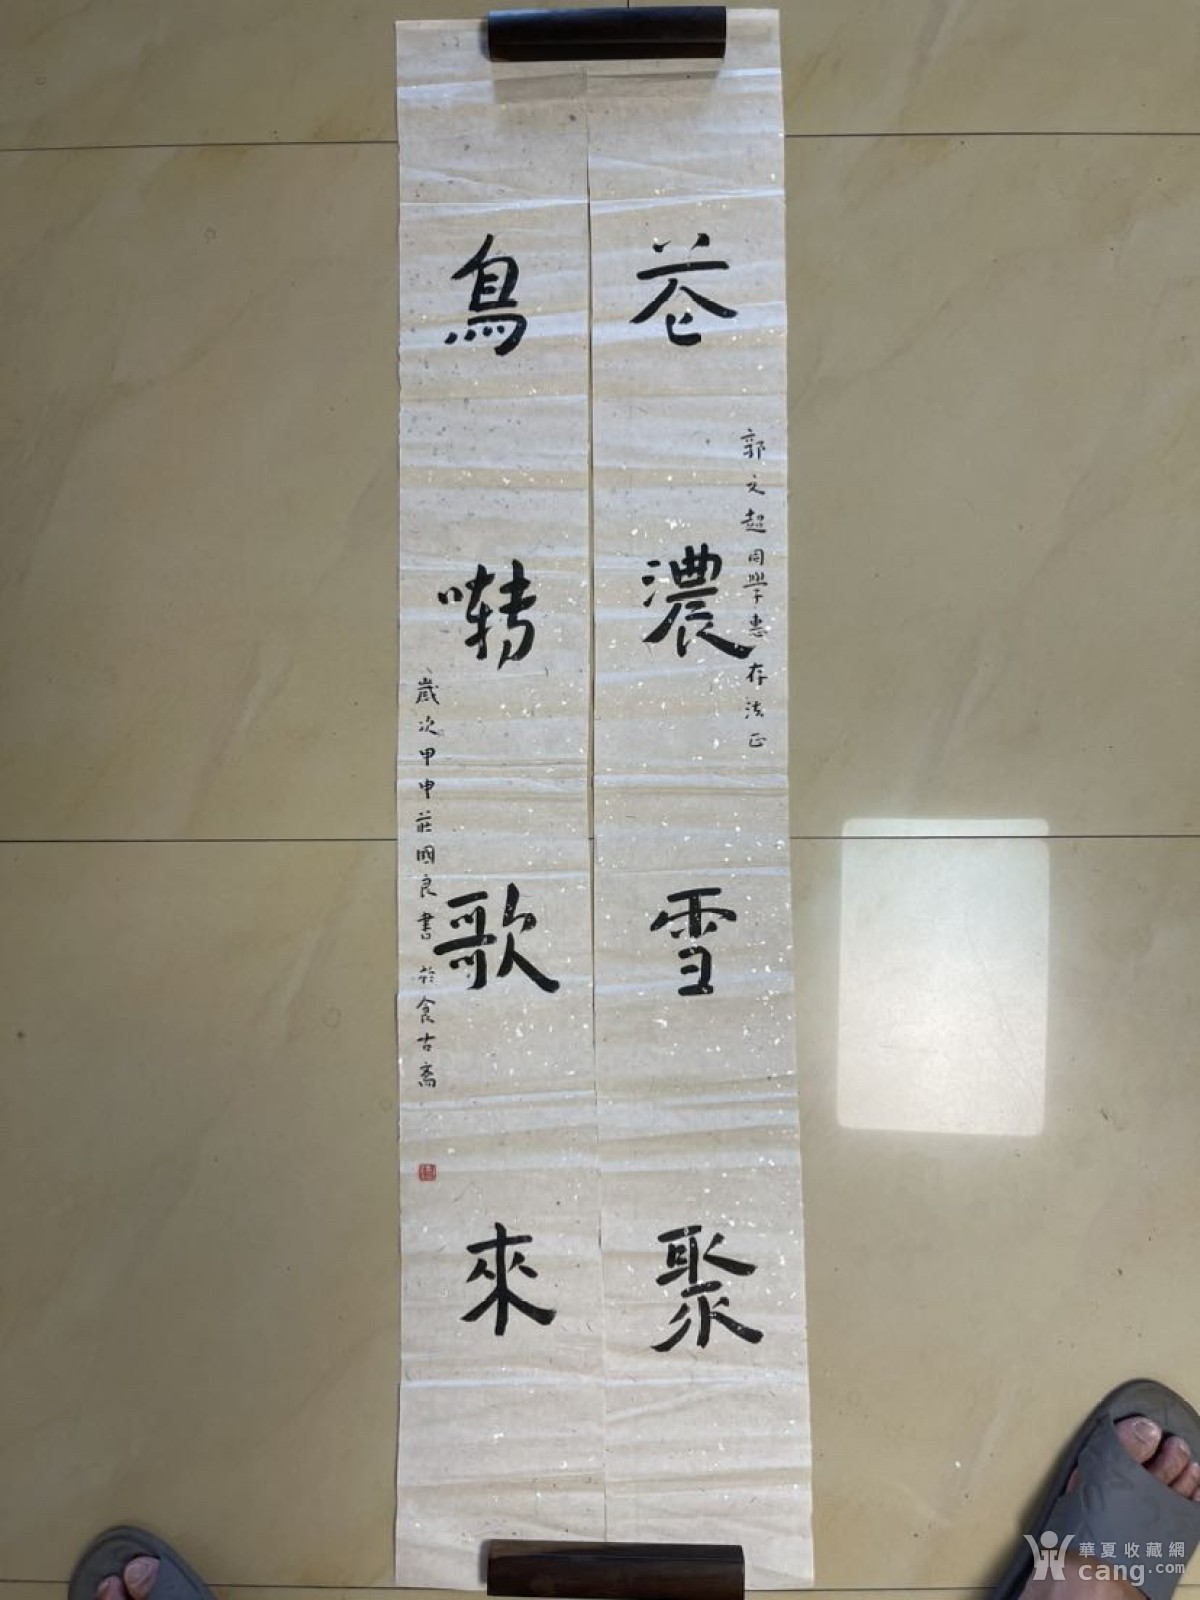 花濃雪聚
郭文超同學惠存法正
鳥囀歌來
歲次甲申莊國良書於食古齋
華夏收藏網
cang.com